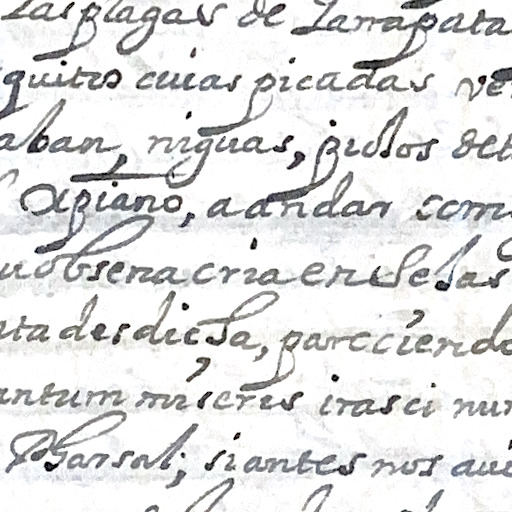 Las plagas de Garrapata
quitos cuias picadas ve
aban, niguas, piolos det
Apiano, a andar com
u obsena cria en sebas
nta desdicha, pareciendo
antum miseris irasci num
Pharsal; si antes nos aui